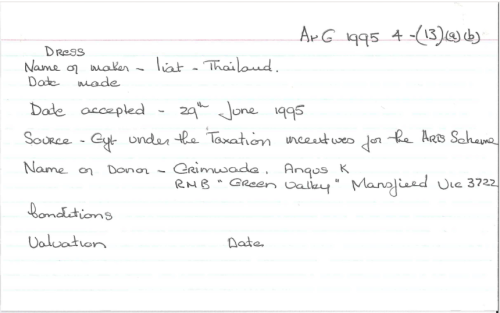 ArG 1995 4-(13)(a)(b)
DRESS
Name of maker - liat - Thailand.
Date made
Date accepted - 29th June 1995
Source - Gyt under the Taxation incentives for the ARts Scheme
Name of Donor - Grimwade, Angus K
RMB "Green Valley" Mansfield Vic 3722
Conditions
Valuation Date